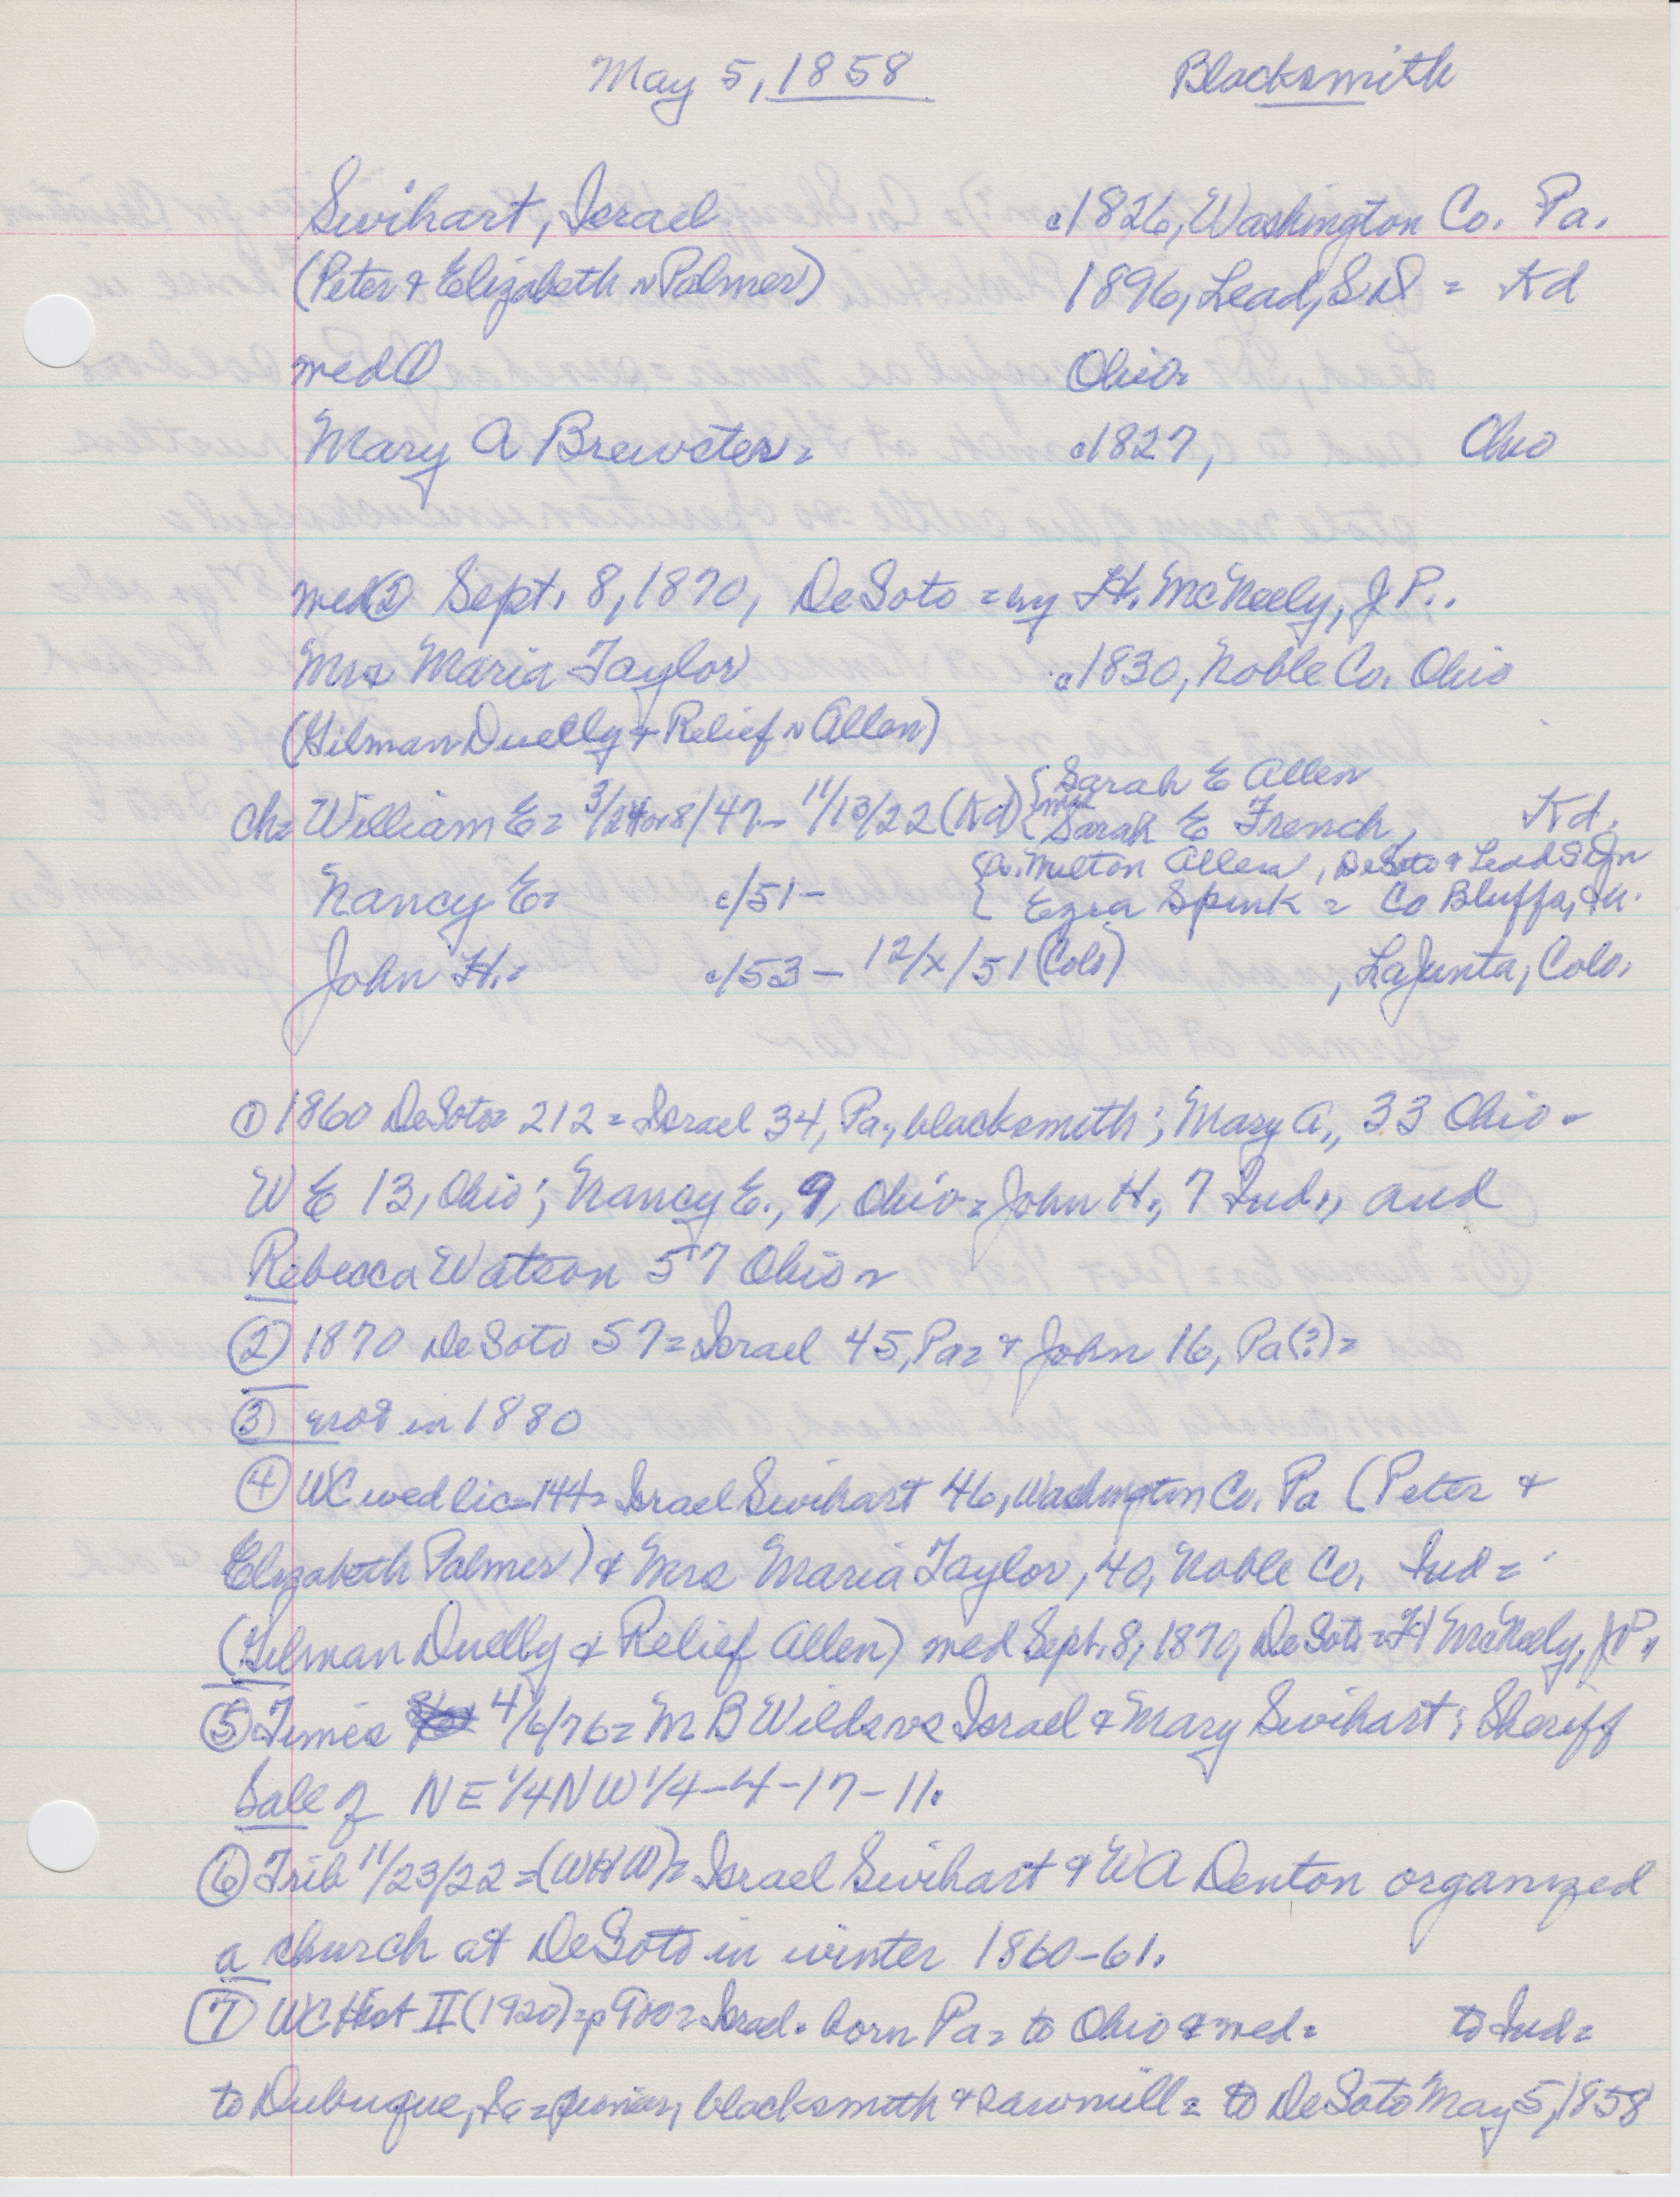 May 5, 1858 Blacksmith
Swihart, Israel c1826, Washington Co. Pa.
(Peter & Elizabeth n Palmer) 1896, Lead, SD = Kd
med ① Ohio=
Mary A Brewster= c1827, Ohio
med ② Sept. 8, 1870, DeSoto = by H. McNeely, J P..
Mrs Maria Taylor c1830, Noble Co. Ohio
(Hilman Duelly & Relief n Allen)
{Sarah E Allen
ch= William E= 3/24 or 8/47- 11/13/22 (Kd) { Sarah E French, Kd.
{ Milton Allen, DeSoto & Lead SD
Nancy E= c/51- { Ezra Spink = Co Bluffs, Ia.
John H.= c/53- 12/x/51 (Colo) , LaJunta, Colo.
① 1860 DeSoto= 212= Israel 34, Pa., blacksmith; Mary A., 33 Ohio-
W E 13, Ohio; Nancy E., 9, Ohio= John H., 7 Ind., and
Rebecca Watson 57 Ohio
② 1870 DeSoto 57= Israel 45, Pa= & John 16, Pa(?)=
③ not in 1880
④ WC wed lic-144= Israel Swihart 46, Washington Co. Pa (Peter &
Elizabeth Palmer) & Mrs Maria Taylor, 40, Noble Co. Ind=
(Hilman Duelly & Relief Allen) med Sept. 8, 1870, DeSoto= H McNeely, J P.,
⑤ Times 4/6/76= M B Wilds vs Israel & Mary Swihart; Sheriff
Sale of NE 1/4 NW 1/4-4-17-11.
⑥ Trib 11/23/22=(WHW)= Israel Swihart & WA Denton organized
a church at DeSoto in winter 1860-61.
⑦ WC Hist II (1920)=p 900= Israel. born Pa= to Ohio & med= to Ind=
to Dubuque, Ia= blacksmith & sawmill= to DeSoto May 5, 1858